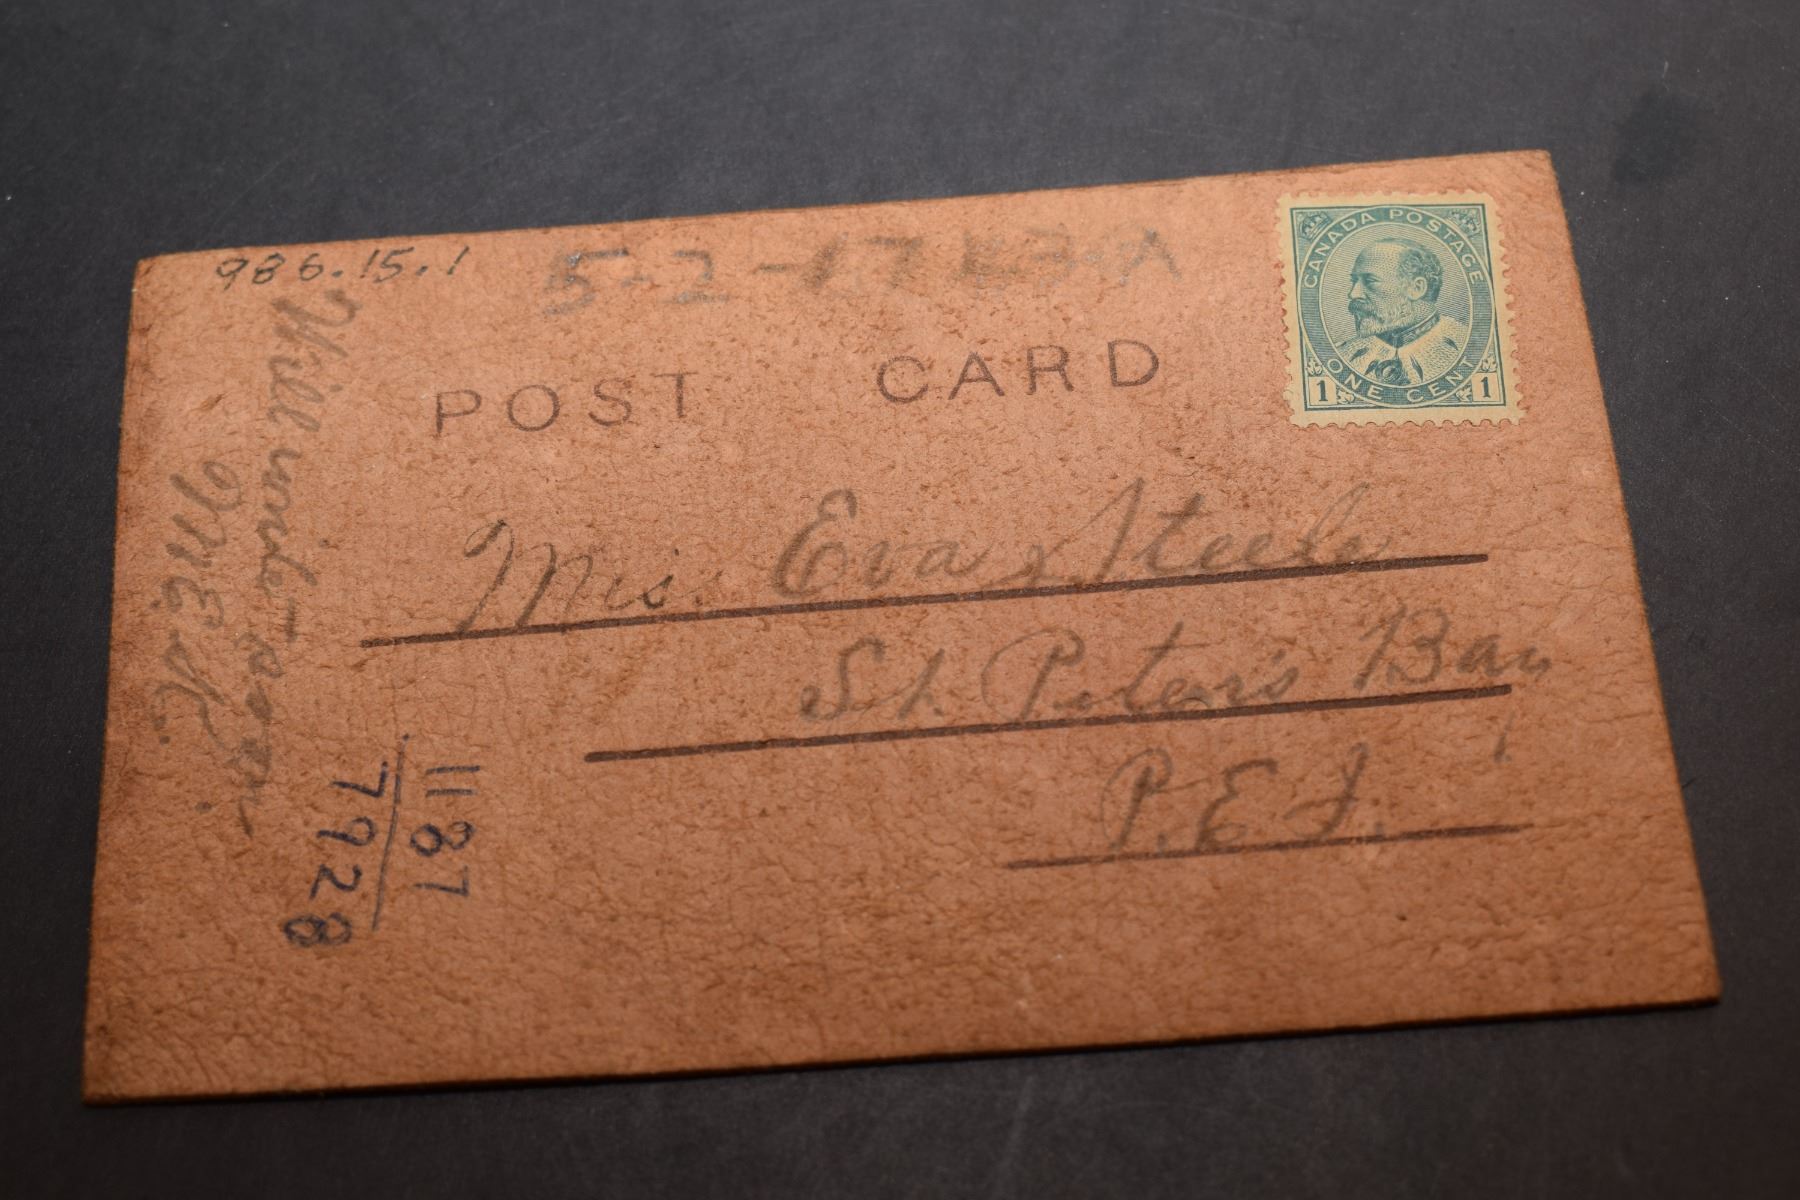 986.15.1
5-2-17
POST CARD
CANADA POSTAGE
ONE CENT
1 1
Miss. Eva Steele
St. Peter's Bay
P.E.I.
Will write
11 87
7928